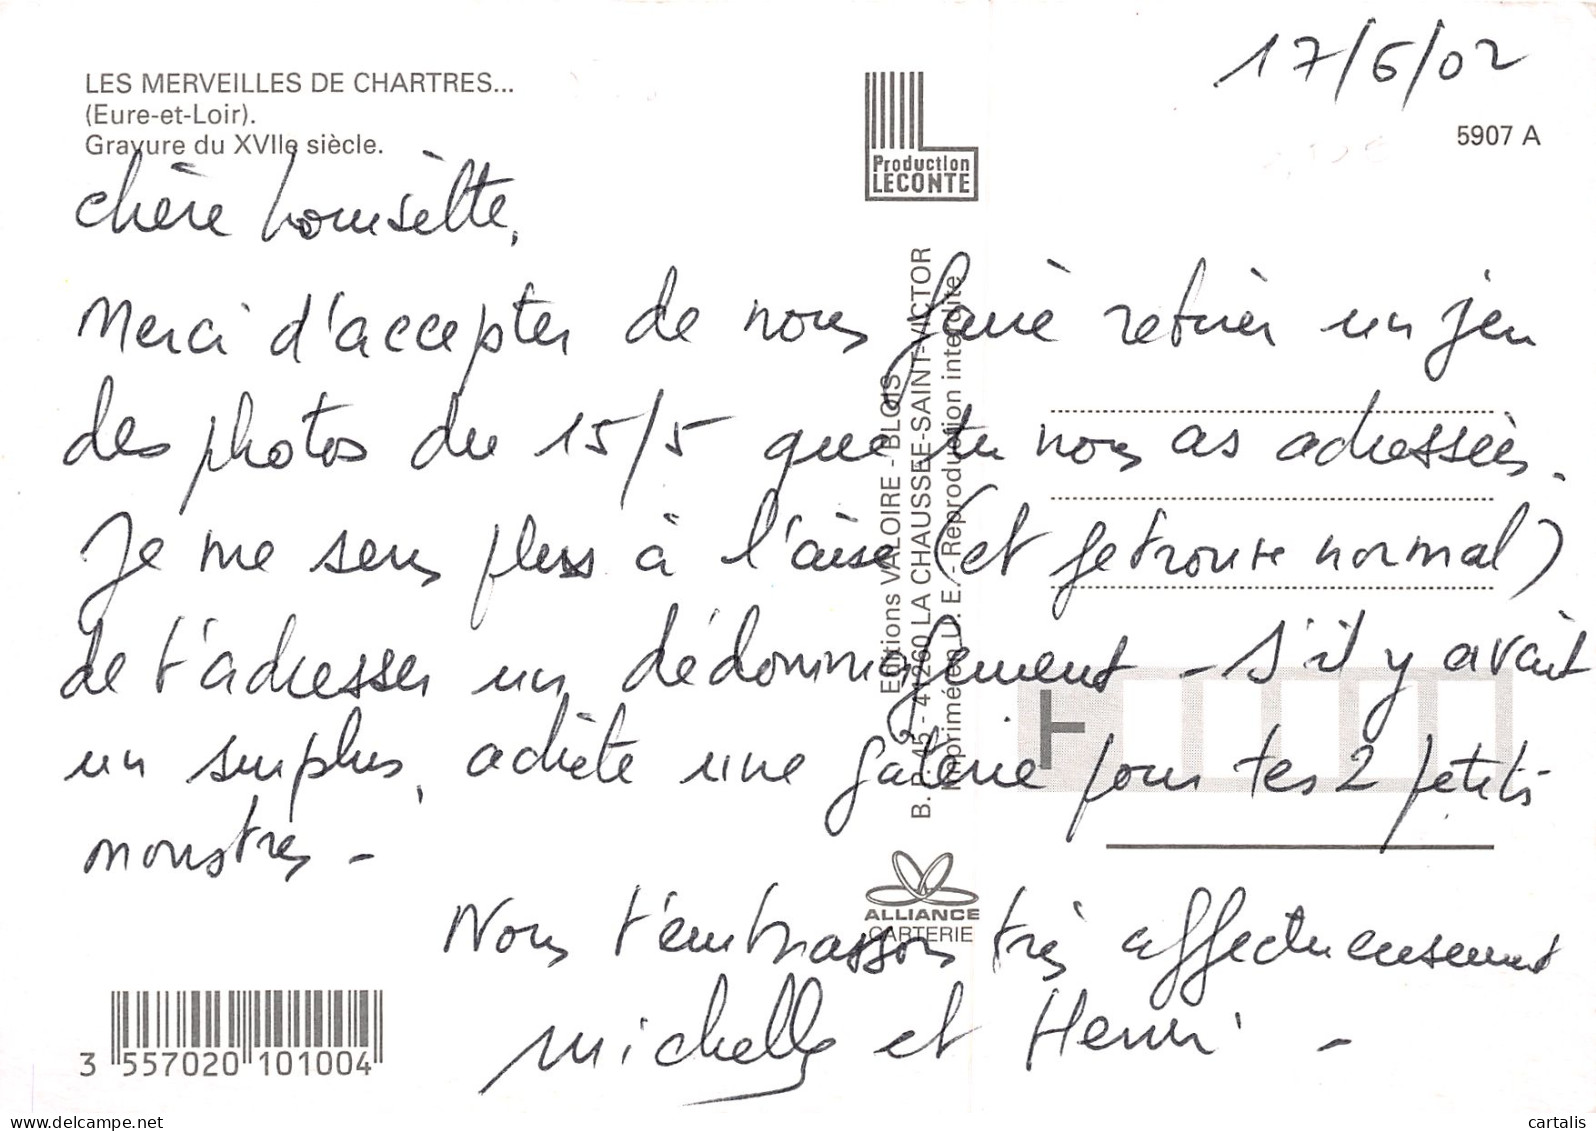 17/6/02
LES MERVEILLES DE CHARTRES...
(Eure-et-Loir).
Gravure du XVIIe siècle.
5907 A
Production
LECONTE
Chère Louisette,
Merci d'accepter de nous faire retirer un jeu
des photos du 15/5 que tu nous as adressées.
Je me sens plus à l'aise (et je trouve normal)
de t'adresser un dédommagement - S'il y avait
un surplus, achète une galerie pour tes 2 petits
monstres -
Nous t'embrassons très affectueusement
Michelle et Henri -
Editions VALOIRE - BLOIS
B. P. 45 - 41260 LA CHAUSSEE-SAINT-VICTOR
Imprimé en U. E. - Reproduction interdite
ALLIANCE
CARTERIE
3 557020 101004
delcampe.net
cartalis